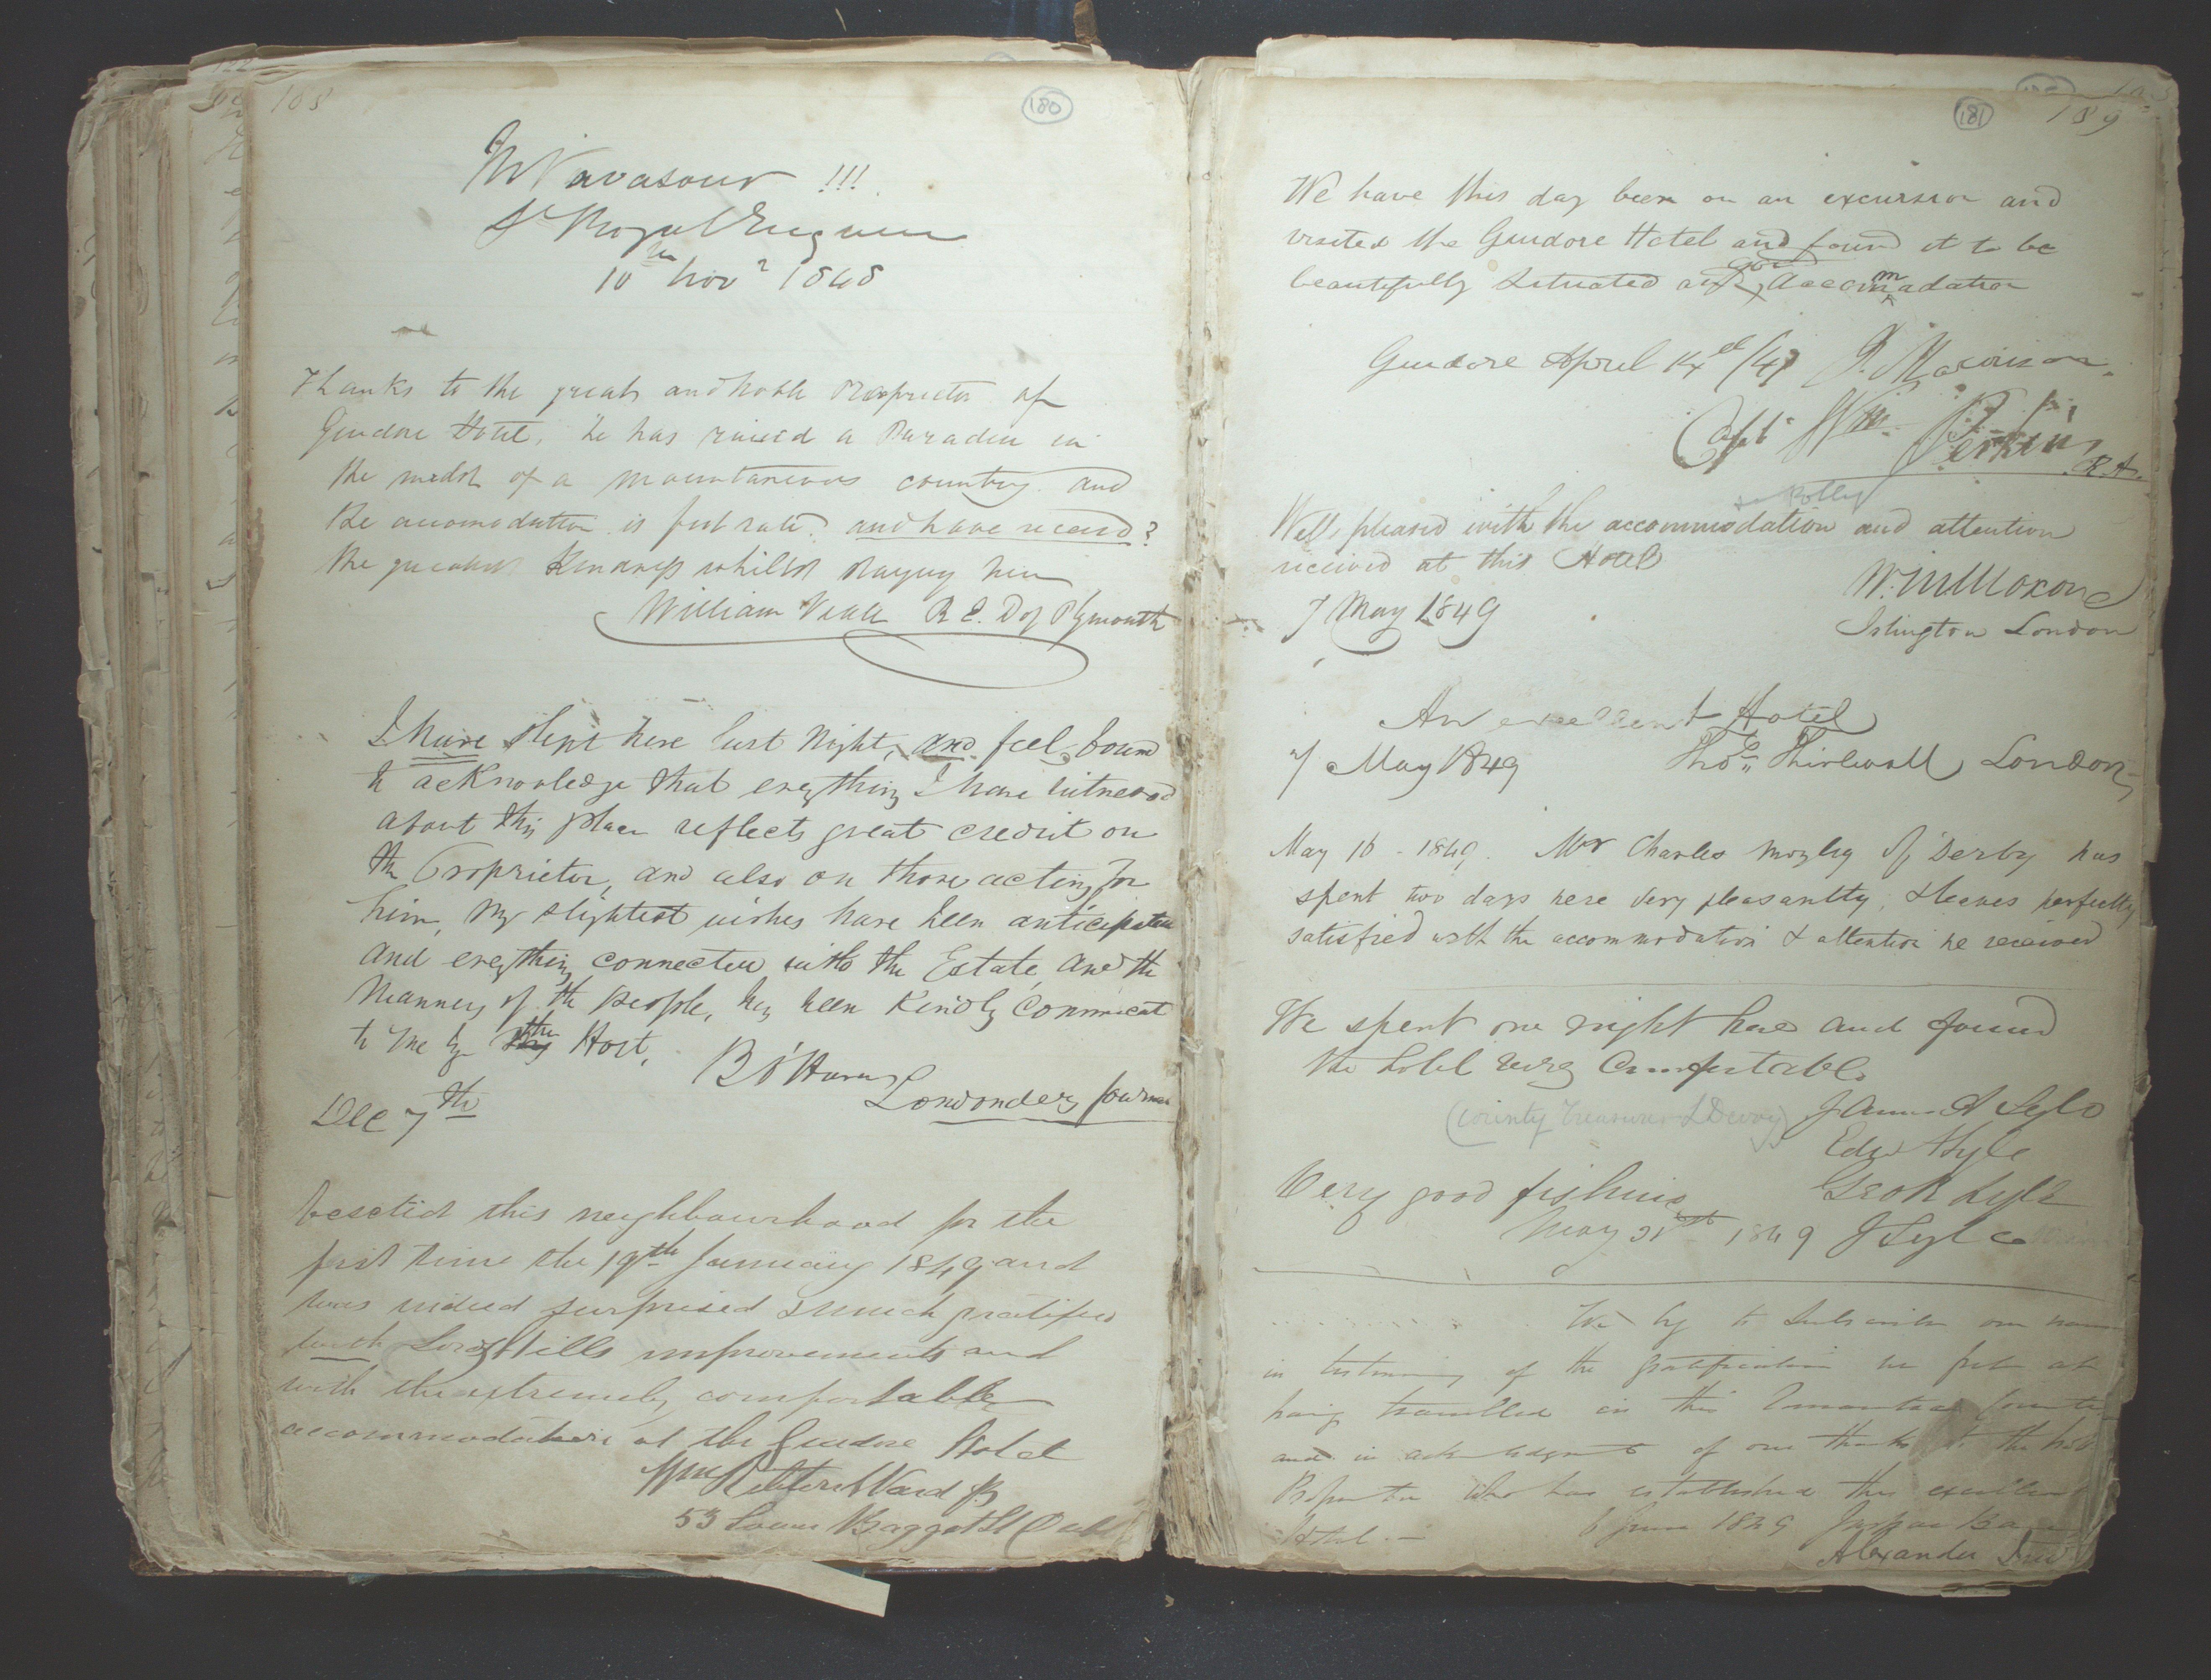 108
180
M Vavasour !!!
Lt Royal Engineers
10th Novr 1848
Thanks to the great and noble Proprietor of
Gweedore Hotel, he has raised a Paradise in
the midst of a mountaneous country and
the accomodation is first rate. and have receivd?
the greatest kindness whilst staying here
William Veale R E. Dof Plymouth
I have slept here last night, and feel bound
to acknowledge that everything I have witnessed
about this place reflects great credit on
the Proprietor, and also on those acting for
him, my slightest wishes have been anticipated
and everything connected with the Estate, and the
manners of the people, has been kindly
to me by the Host.
Dec 7th
Londonderry
this neighbourhood for the
first time the 19th January 1849 and
was indeed surprised & much gratified
with Lord Hills improvements and
with the extremely comfortable
accommodation at the Gweedore Hotel
Wm Ward
53 Lower Baggot St Dubl
181
189
We have this day been on an excursion and
visited the Gweedore Hotel and found it to be
beautifully situated and good accommadation
Gweedore April J. Morrison
Capt Wm. Perkins R.A.
& Polly
Well pleased with the accommodation and attention
received at this Hotel
7 May 1849
W. Moxon
Islington London
An excellent Hotel
7 May 1849 Thos. Thirlwall, London
May 16 - 1849. Mr Charles Mozley of Derby has
spent two days here very pleasantly, & leaves perfectly
satisfied with the accommodation & attention he received
We spent one night here and found
the hotel very Comfortable
(County Treasurer L Derry) James A Lyle
Edw Lyle
Very good fishing Geo R Lyle
May 1849 J Lyle
We beg to subscribe our names
in testimony of the gratification we felt at
having travelled in this Romantic Country
and in acknowledgment of our thanks to the
Proprietor who has established this excellent
Hotel.— 6 June 1849
Alexander